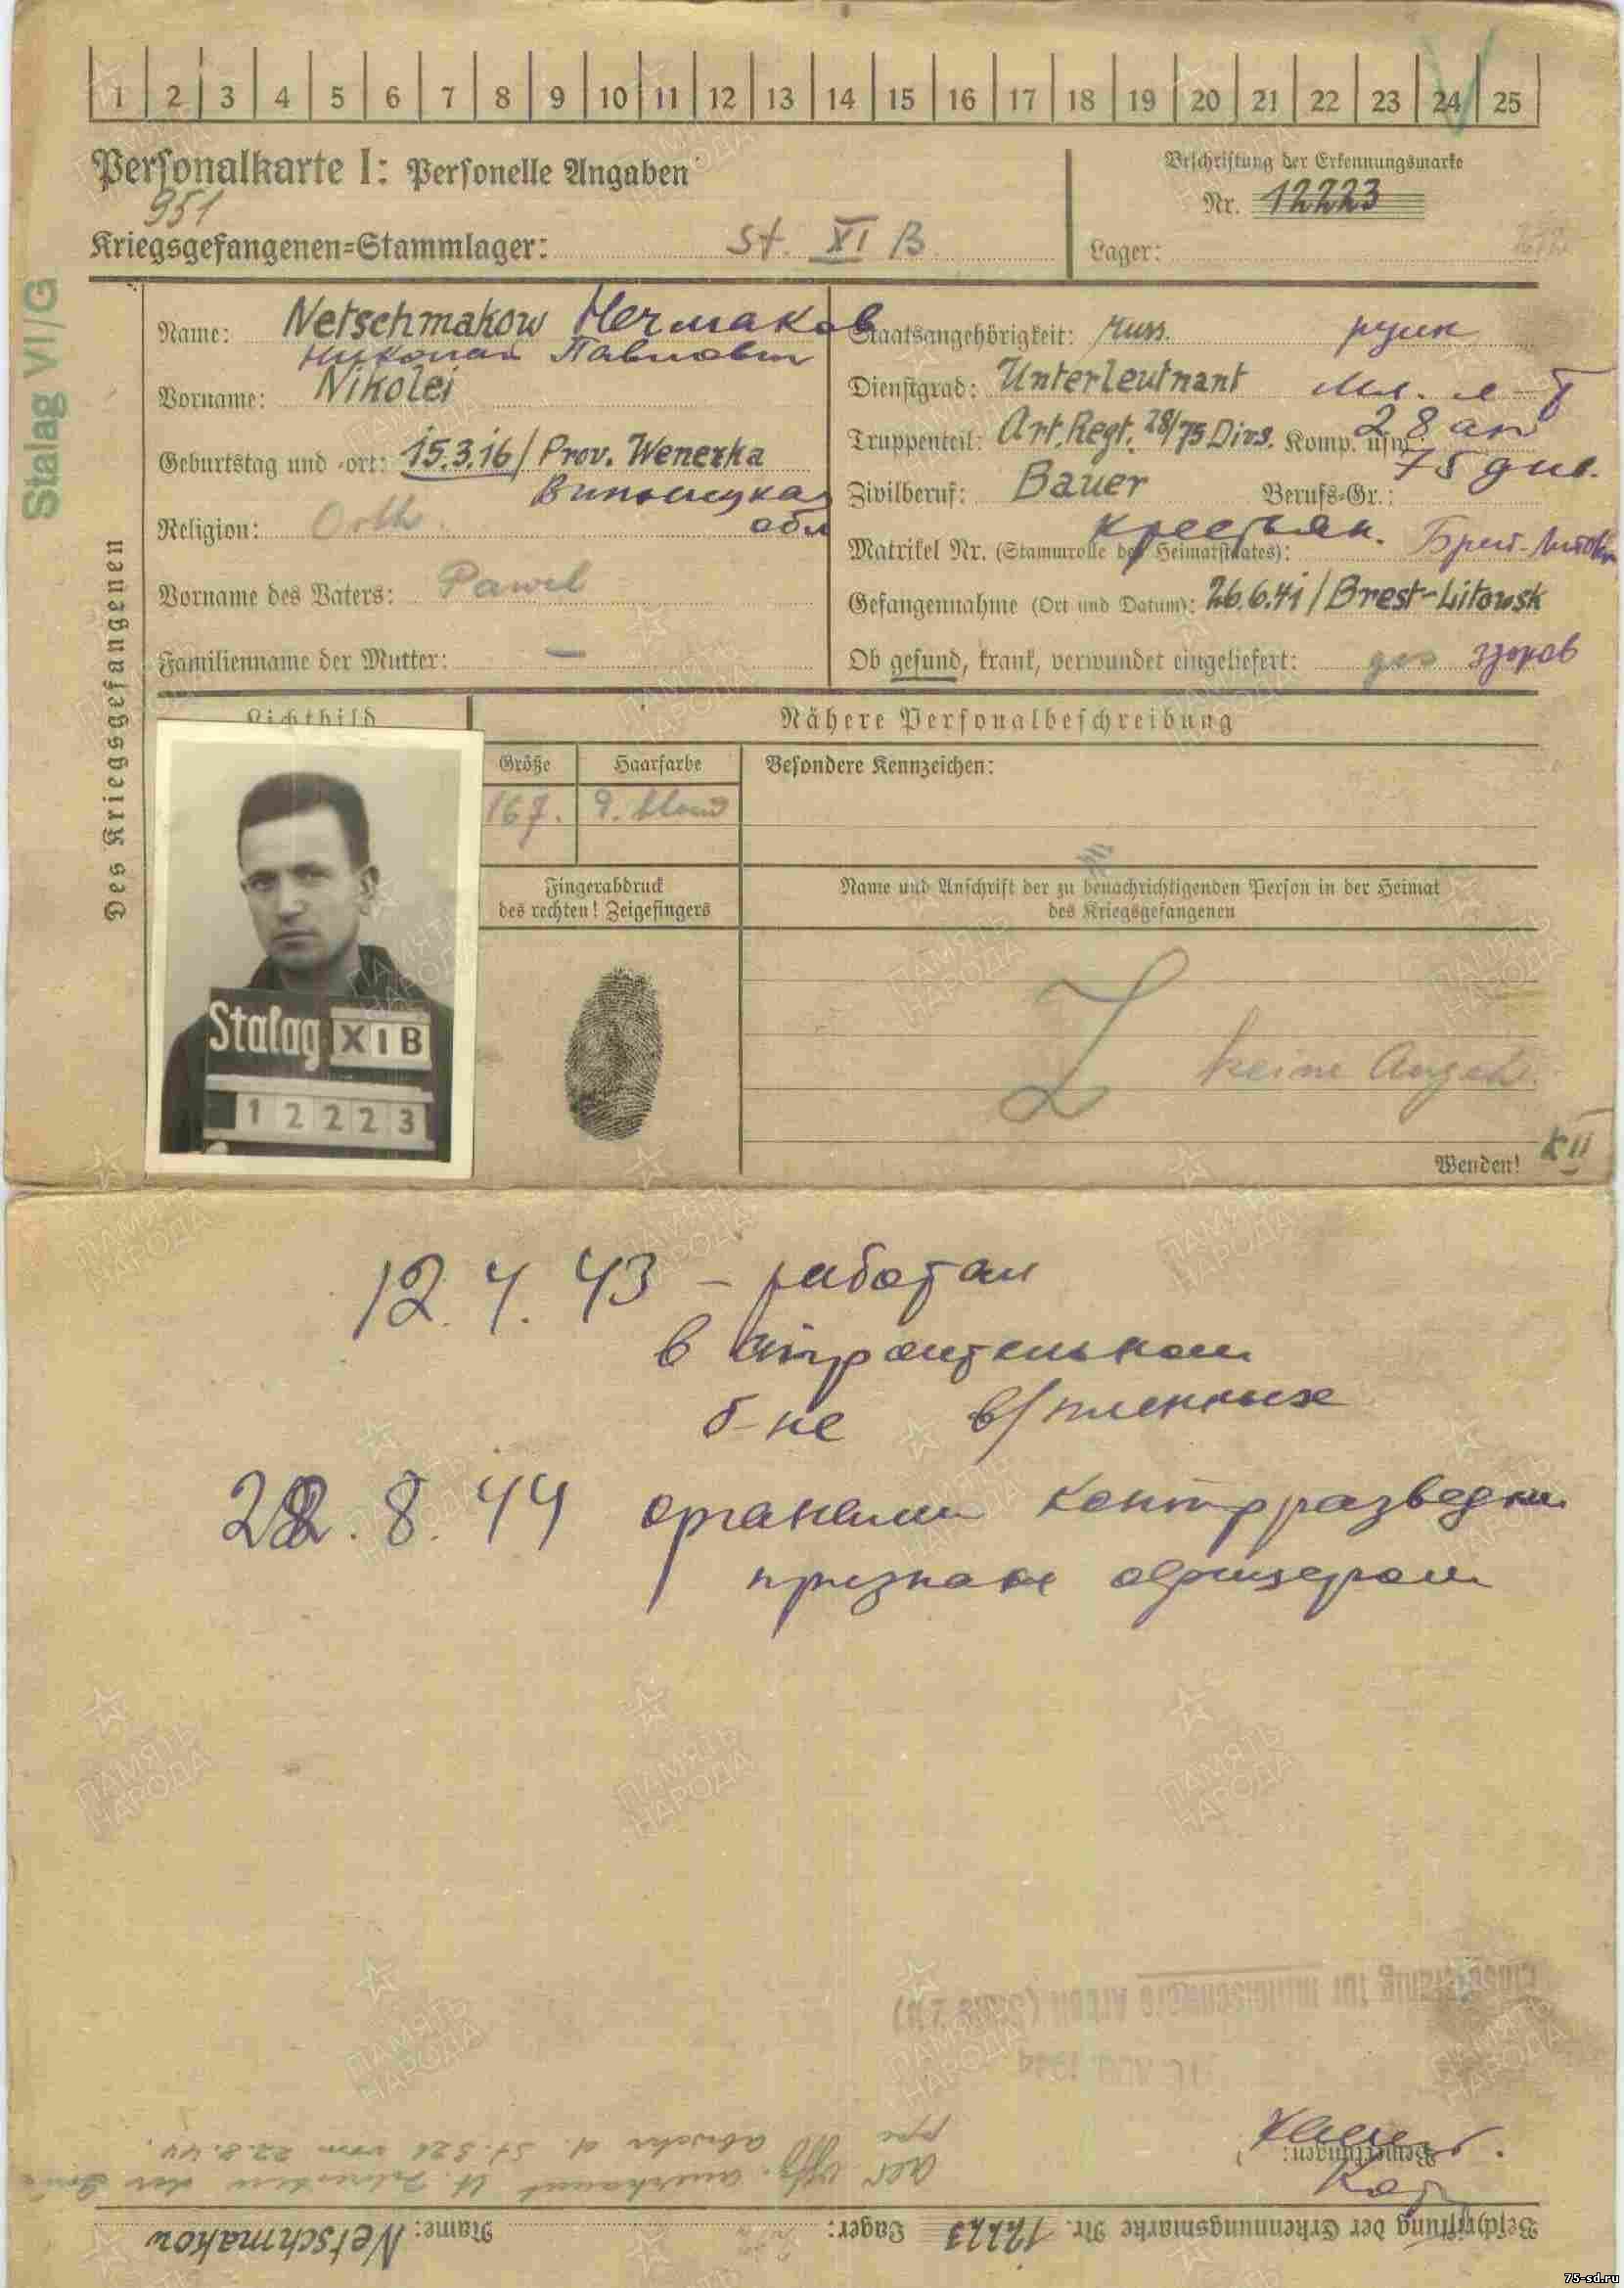 1 2 3 4 5 6 7 8 9 10 11 12 13 14 15 16 17 18 19 20 21 22 23 24 25
Personalkarte I: Personelle Angaben
951
Kriegsgefangenen=Stammlager: St. XI B
Beschriftung der Erkennungsmarke
Nr. 12223
Lager:
Stalag VI/G
Des Kriegsgefangenen
Name: Netschmakow Нечмаков
Николай Павлович
Vorname: Nikolei
Geburtstag und -ort: 15.3.16/ Prov. Wenezka
Винницкая
обл
Religion: Orth.
Vorname des Vaters: Pawel
Familienname der Mutter: —
Staatsangehörigkeit: russ. русск
Dienstgrad: Unterleutnant Мл. л-т
Truppenteil: Art. Regt. 28/75 Divs. Komp. usw.: 28 ап
75 див.
Zivilberuf: Bauer Berufs=Gr.:
крестьян.
Matrikel Nr. (Stammrolle des Heimatstaates): Брест-Литовск
Gefangennahme (Ort und Datum): 26.6.41/Brest-Litowsk
Ob gesund, krank, verwundet eingeliefert: ges здоров
Lichtbild
Nähere Personalbeschreibung
Größe Haarfarbe Besondere Kennzeichen:
167. blond
Fingerabdruck
des rechten! Zeigefingers
Name und Anschrift der zu benachrichtigenden Person in der Heimat
des Kriegsgefangenen
keine Angeh.
Stalag XIB
12223
Wenden!
XII
12.4.43 – работал
в строительном
б-не в/пленных
22.8.44 органами контрразведки
признан офицером
Bemerkungen:
als Offz. anerkannt
Abwehr d. St. 326 vom 22.8.44.
Beschriftung der Erkennungsmarke Nr. 12223 Lager: Name: Netschmakow
ПАМЯТЬ
НАРОДА
75-sd.ru